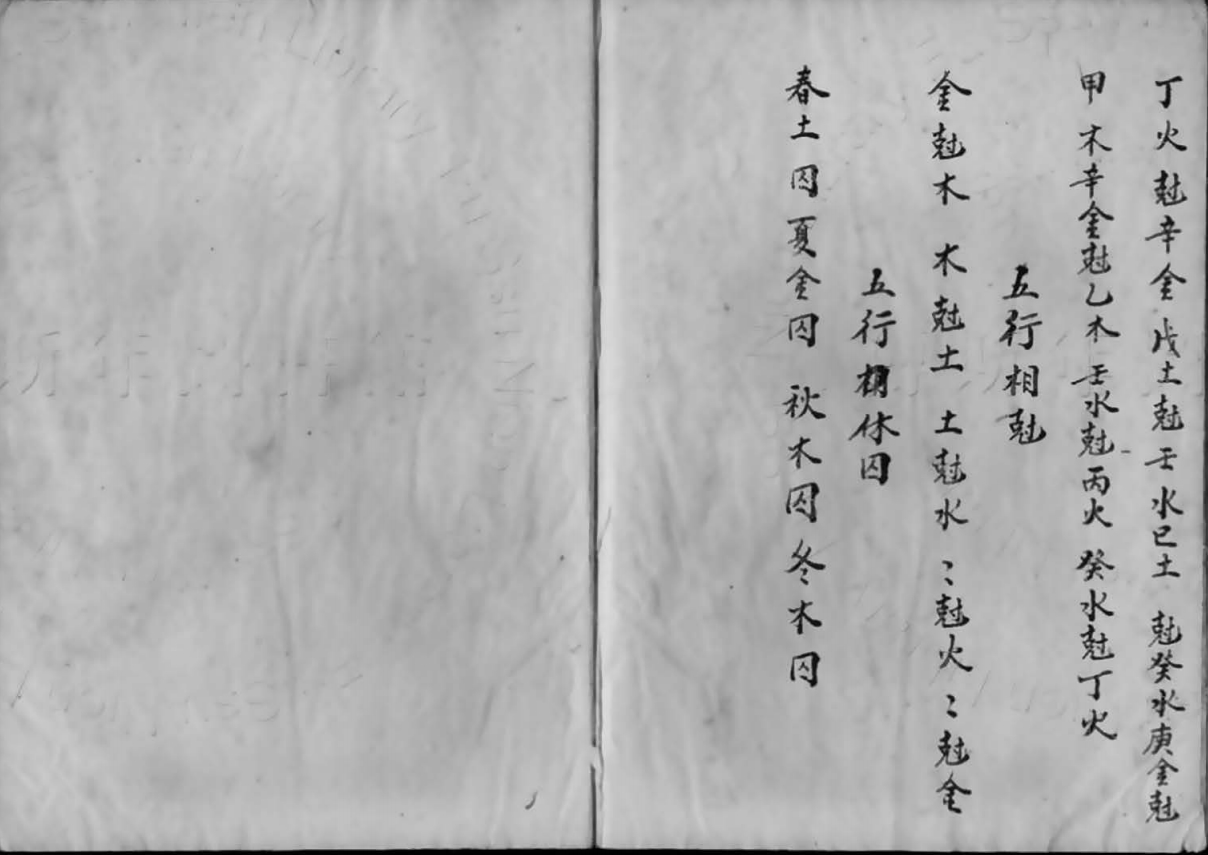 丁火尅辛金戊土尅壬水已土尅癸水庚金尅
甲木辛金尅乙木壬水尅丙火癸水尅丁火
五行相尅
金尅木木尅土土尅水〻尅火〻尅金
五行相休囚
春土囚夏金囚秋木囚冬木囚